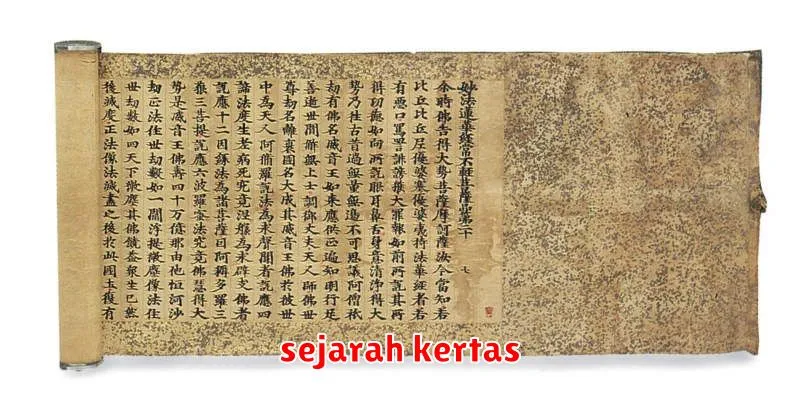 妙法蓮華經常不輕菩薩品第二十
七
尒時佛告得大勢菩薩摩訶薩汝今當知若
比丘比丘尼優婆塞優婆夷持法華經者若
有惡口罵詈誹謗獲大罪報如前所說其所
得功德如向所說眼耳鼻舌身意清淨得大
勢乃往古昔過無量無邊不可思議阿僧祇
劫有佛名威音王如來應供正遍知明行足
善逝世間解無上士調御丈夫天人師佛世
尊劫名離衰國名大成其威音王佛於彼世
中為天人阿脩羅說法為求聲聞者說應四
諦法度生老病死究竟涅槃為求辟支佛者
說應十二因緣法為諸菩薩因阿耨多羅三
藐三菩提說應六波羅蜜法究竟佛慧得大
勢是威音王佛壽四十萬億那由他恒河沙
劫正法住世劫數如一閻浮提微塵像法住
世劫數如四天下微塵其佛饒益衆生已然
後滅度正法像法滅盡之後於此國土復有
sejarah kertas